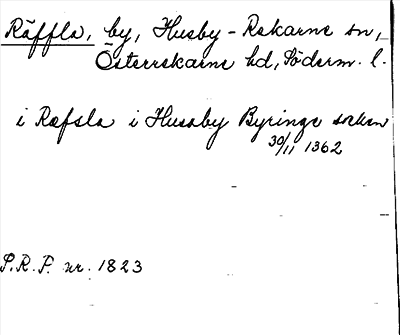 Räffla, by, Husby-Rekarne sn,
Österrekarne hd, Söderm. l.
i Ræfsla i Husaby Byringe sokn
30/11 1362
S.R.P. nr. 1823